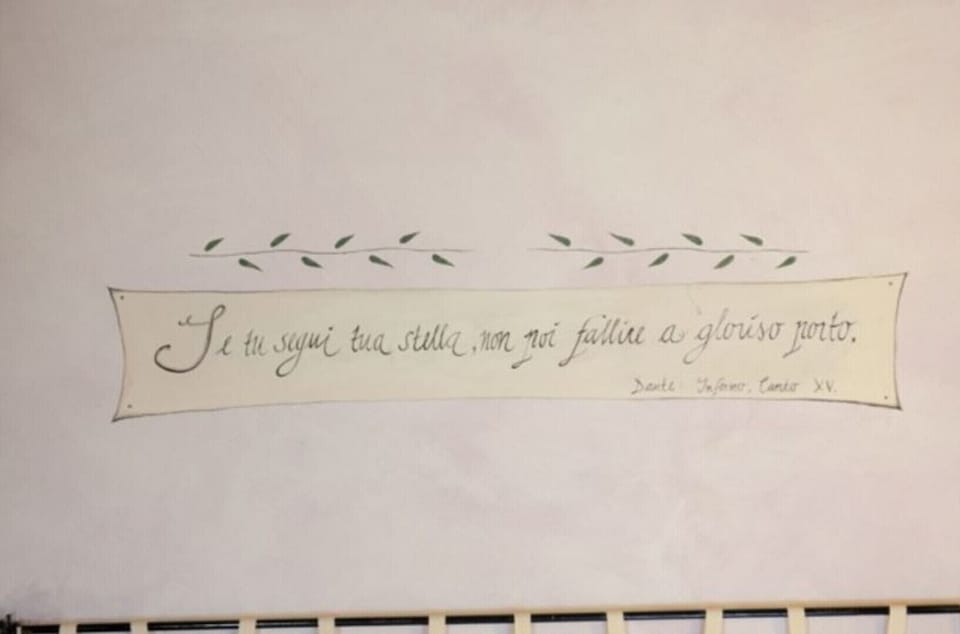 Se tu segui tua stella, non poi fallire a gloriso porto.
Dante: Inferno, Canto XV.